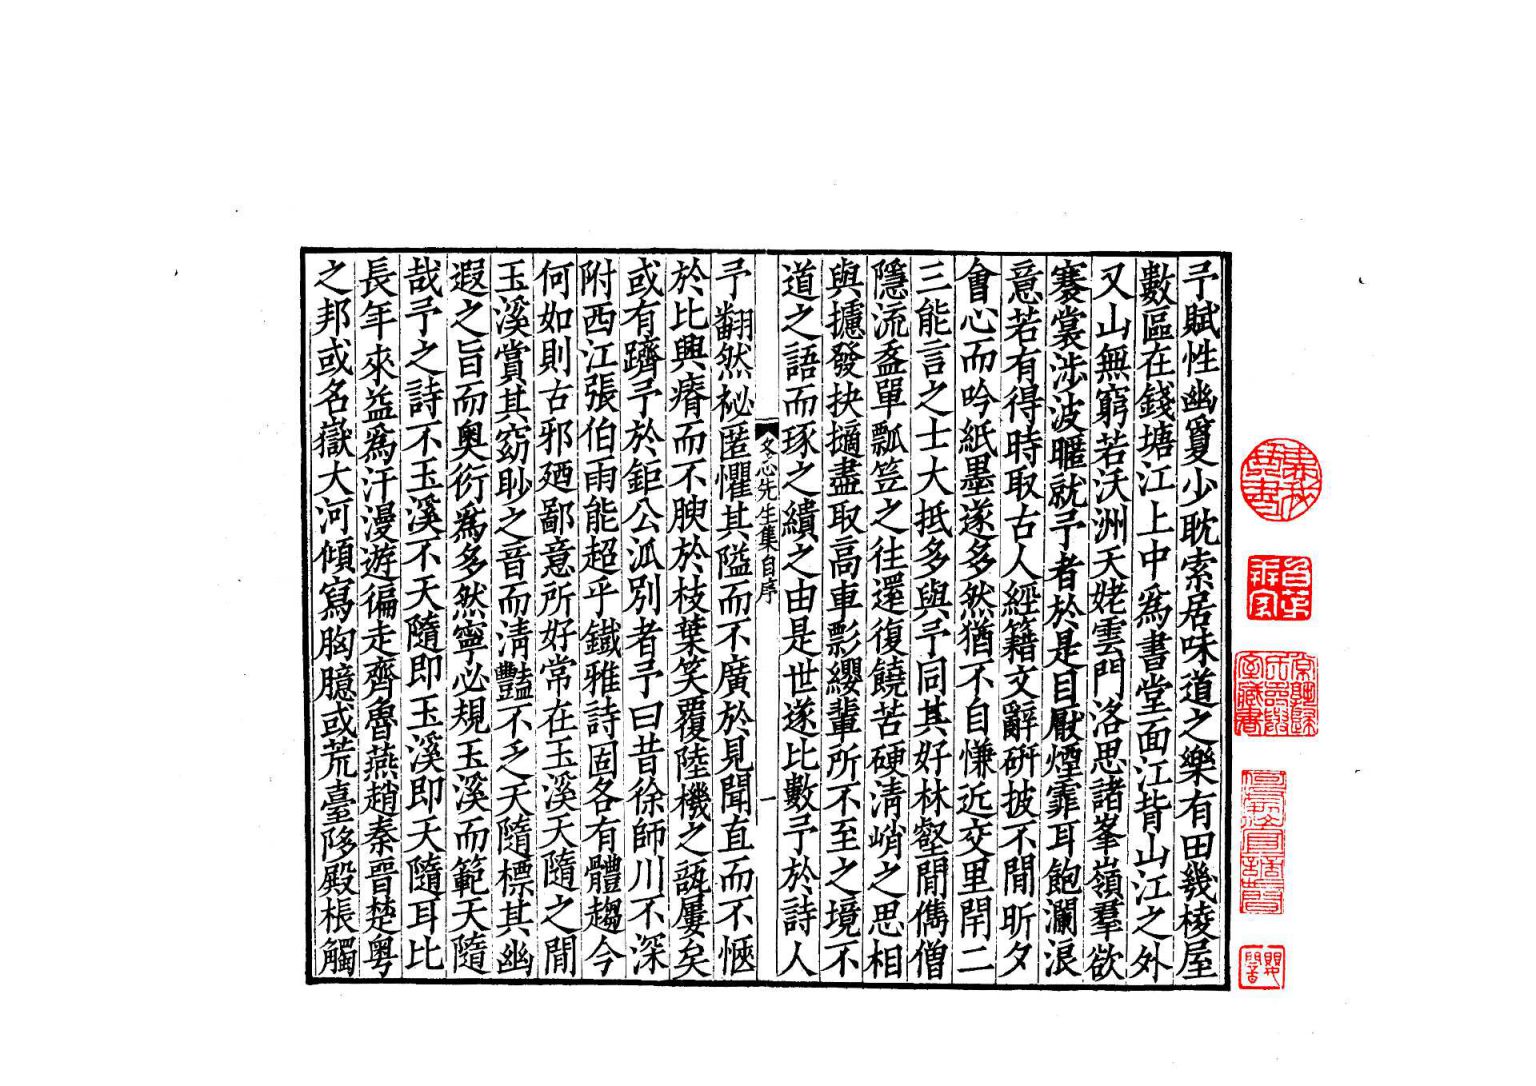 予賦性幽夐少耽索居味道之樂有田幾棱屋
數區在錢塘江上中爲書堂面江背山江之外
又山無窮若沃洲天姥雲門洛思諸峯嶺羣欲
褰裳涉波暱就予者於是目厭煙霏耳飽瀾浪
意若有得時取古人經籍文辭硏披不閒昕夕
會心而吟紙墨遂多然猶不自慊近交里閈二
三能言之士大抵多與予同其好林壑閒儁僧
隱流盋單瓢笠之往還復饒苦硬清峭之思相
與攄發抉擿盡取高車影纓輩所不至之境不
道之語而琢之繢之由是世遂比數予於詩人
冬心先生集自序 一
予翻然祕匿懼其隘而不廣於見聞直而不愜
於比興瘠而不腴於枝葉笑覆陸機之瓿屢矣
或有躋予於鉅公派別者予曰昔徐師川不深
附西江張伯雨能超乎鐵雅詩固各有體趨今
何如則古邪廼鄙意所好常在玉溪天隨之閒
玉溪賞其窈眇之音而清豔不乏天隨標其幽
遐之旨而奧衍爲多然寧必規玉溪而範天隨
哉予之詩不玉溪不天隨即玉溪即天隨耳比
長年來益爲汗漫遊徧走齊魯燕趙秦晉楚粵
之邦或名嶽大河傾寫胸臆或荒臺陊殿棖觸